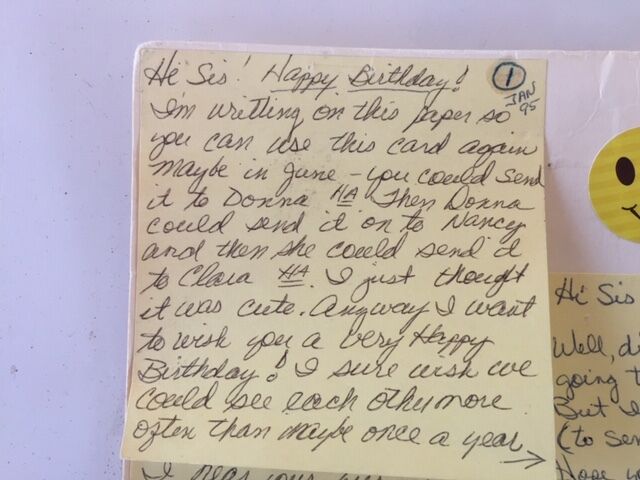 Hi Sis! Happy Birthday! ①
JAN
95
I'm writting on this paper so
you can use this card again
maybe in June - you could send
it to Donna HA Then Donna
could send it on to Nancy
and then she could send it
to Clara HA. I just thought
it was cute. Anyway I want
to wish you a very Happy
Birthday! I sure wish we
could see each other more
often than maybe once a year →
Hi Sis
Well, di
going t
But I
(to sen
Hope yo